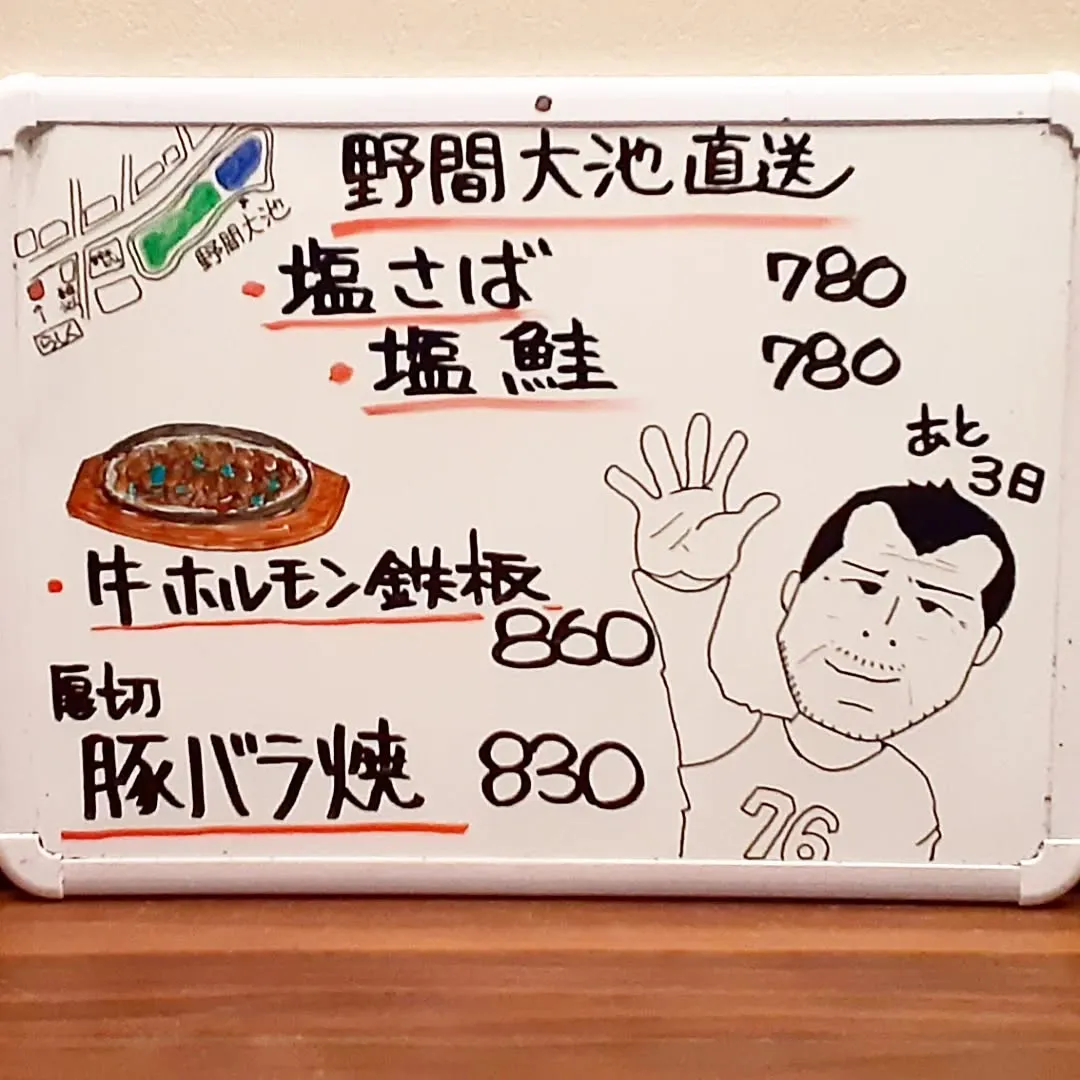 野間大池直送
野間大池
・塩さば 780
・塩鮭 780
あと
3日
・牛ホルモン鉄板
860
厚切
豚バラ焼 830
76